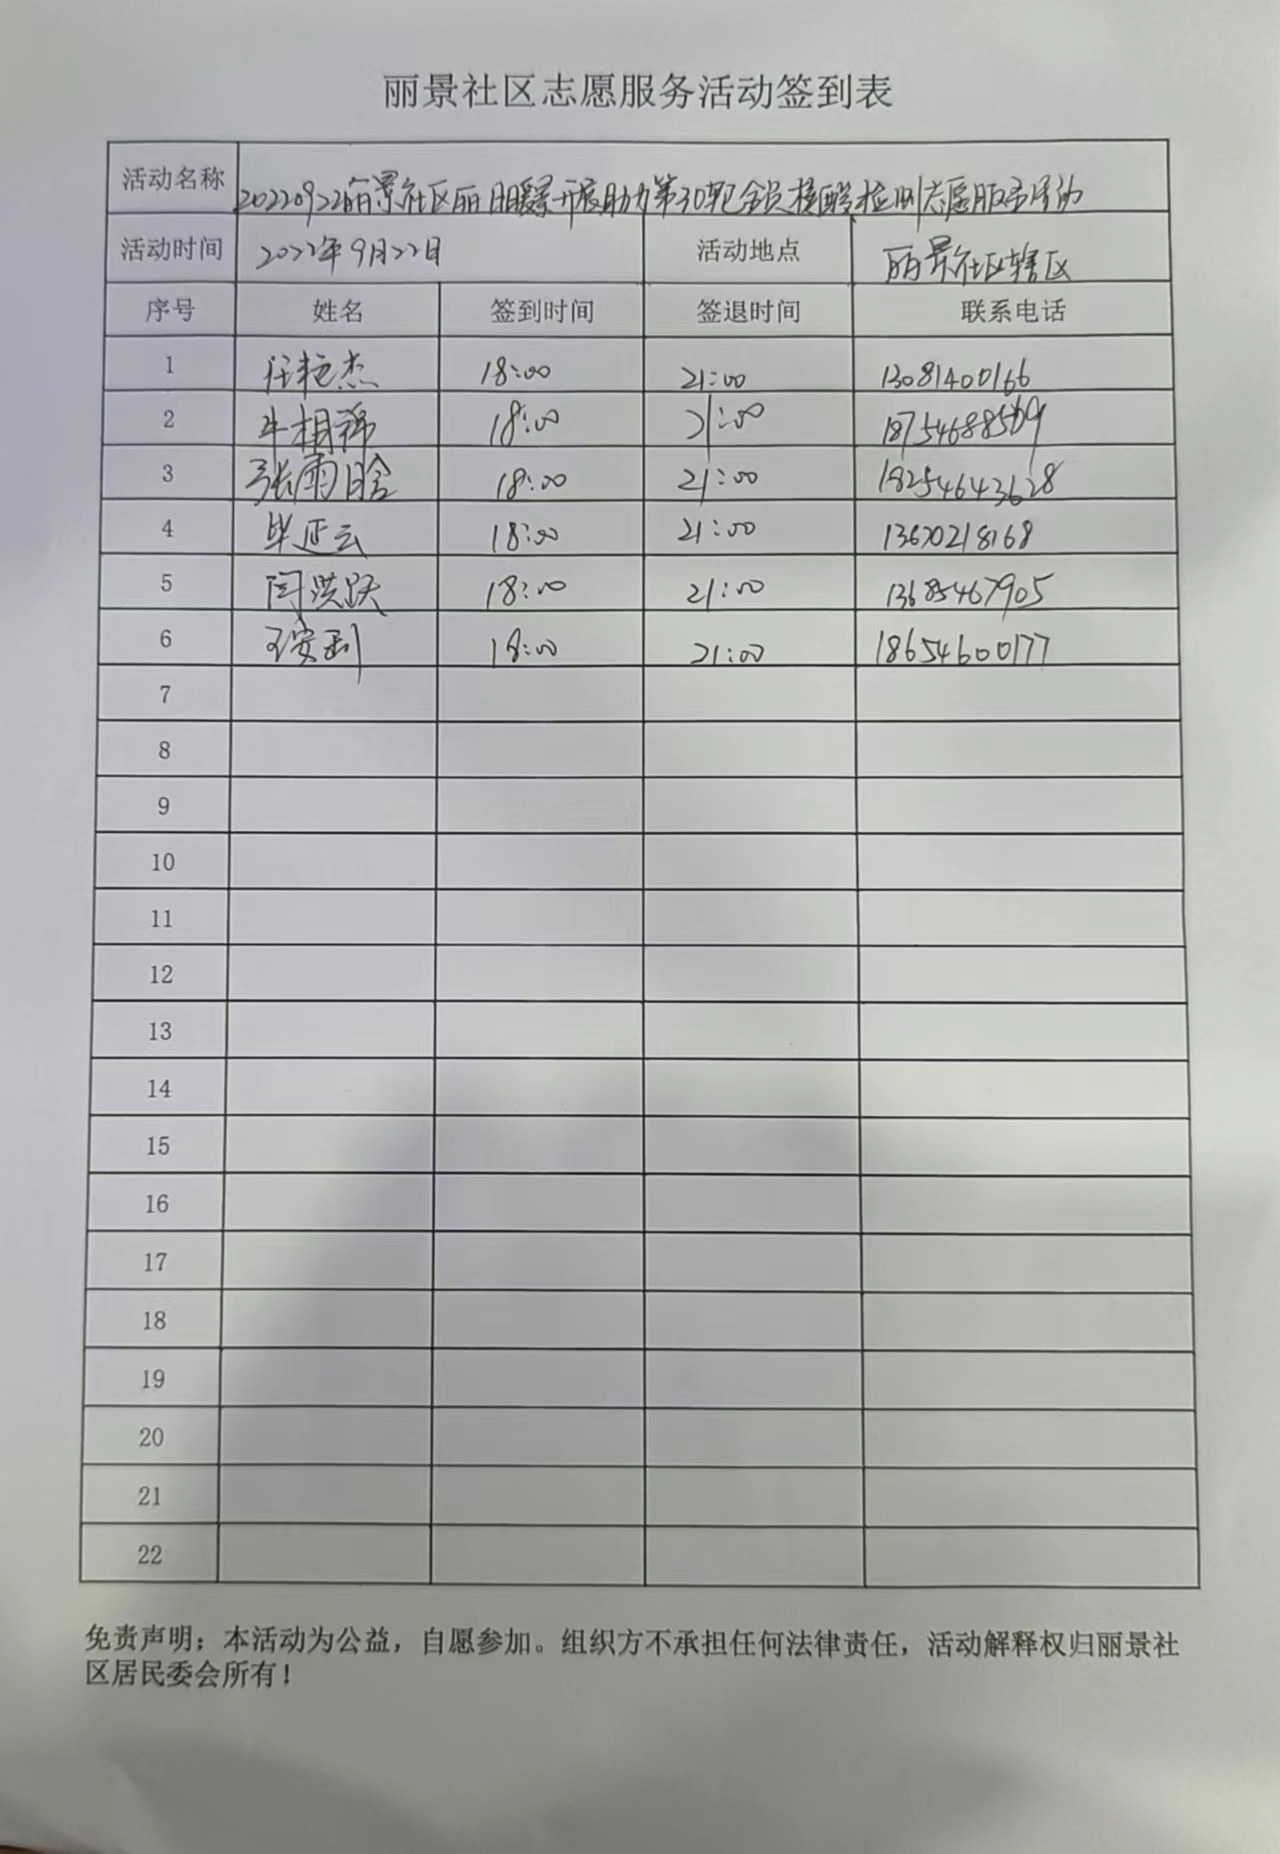 丽景社区志愿服务活动签到表
活动名称 20220922丽景社区丽日暖景开展助力第30轮全员核酸检测志愿服务活动
活动时间 2022年9月22日 活动地点 丽景社区辖区
序号 姓名 签到时间 签退时间 联系电话
1 任艳杰 18:00 21:00 13081400166
2 牛相稀 18:00 21:00
3 张雨晗 18:00 21:00 18254643628
4 毕延云 18:00 21:00
5 闫洪跃 18:00 21:00 13685467905
6 18:00 21:00 18654600177
7
8
9
10
11
12
13
14
15
16
17
18
19
20
21
22
免责声明：本活动为公益，自愿参加。组织方不承担任何法律责任，活动解释权归丽景社
区居民委会所有！